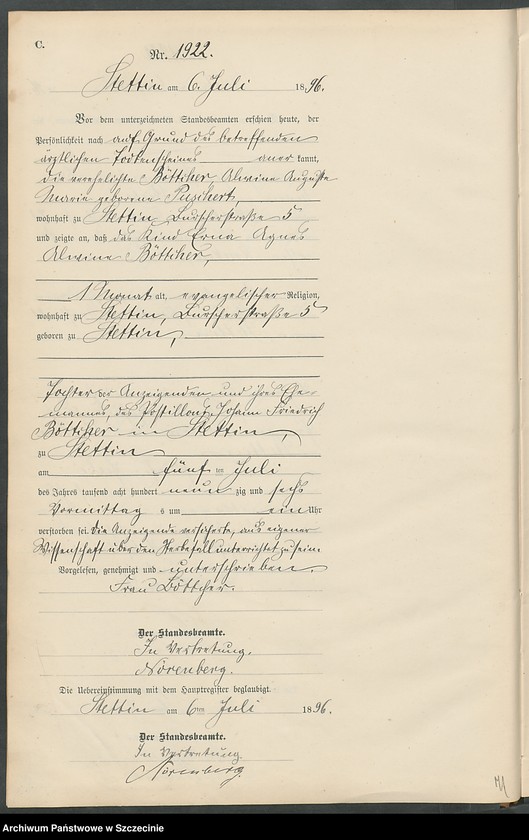 C.
Nr. 1922.
Stettin am 6. Juli 1896.
Vor dem unterzeichneten Standesbeamten erschien heute, der
Persönlichkeit nach auf Grund des betreffenden
ärztlichen Todtenscheines anerkannt,
die verehelichte Böttcher, Alwine Auguste
Marie geborene
wohnhaft zu Stettin, Turnerstraße 5
und zeigte an, daß das Kind Erna Agnes
Alwine Böttcher,
1 Monat alt, evangelischer Religion,
wohnhaft zu Stettin, Turnerstraße 5
geboren zu Stettin,
Tochter der Anzeigenden und ihres Ehe-
mannes, des Postillons Johann Friedrich
Böttcher in Stettin,
zu Stettin
am fünften Juli
des Jahres tausend acht hundert neunzig und sechs
Vormittags um ein Uhr
verstorben sei. Die Anzeigende versicherte, aus eigener
Wissenschaft über den Sterbefall unterrichtet zu sein
Vorgelesen, genehmigt und unterschrieben.
Frau Böttcher.
Der Standesbeamte.
In Vertretung.
Nörenberg.
Die Uebereinstimmung mit dem Hauptregister beglaubigt.
Stettin am 6ten Juli 1896.
Der Standesbeamte.
In Vertretung
Nörenberg.
Archiwum Państwowe w Szczecinie